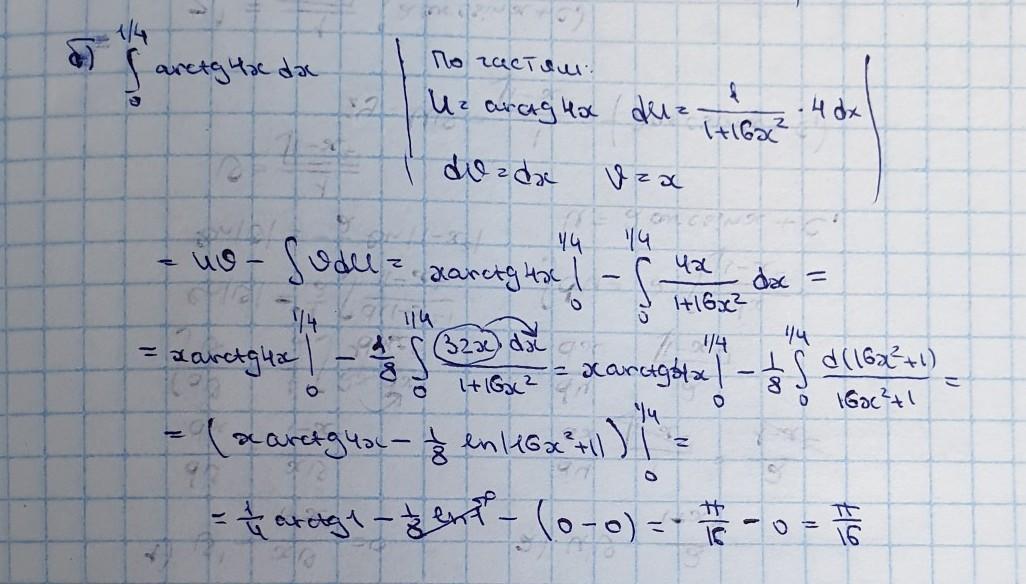 б) ∫₀^{1/4} arctg4x dx | По частям: |
u = arctg4x du = 1/(1+16x²) · 4dx
dv = dx v = x
= uv − ∫vdu = xarctg4x |₀^{1/4} − ∫₀^{1/4} 4x/(1+16x²) dx =
= xarctg4x |₀^{1/4} − 1/8 ∫₀^{1/4} 32x dx/(1+16x²) = xarctg4x |₀^{1/4} − 1/8 ∫₀^{1/4} d(16x²+1)/(16x²+1) =
= (xarctg4x − 1/8 ln|16x²+1|) |₀^{1/4} =
= 1/4 arctg1 − 1/8 ln1 − (0−0) = π/16 − 0 = π/16